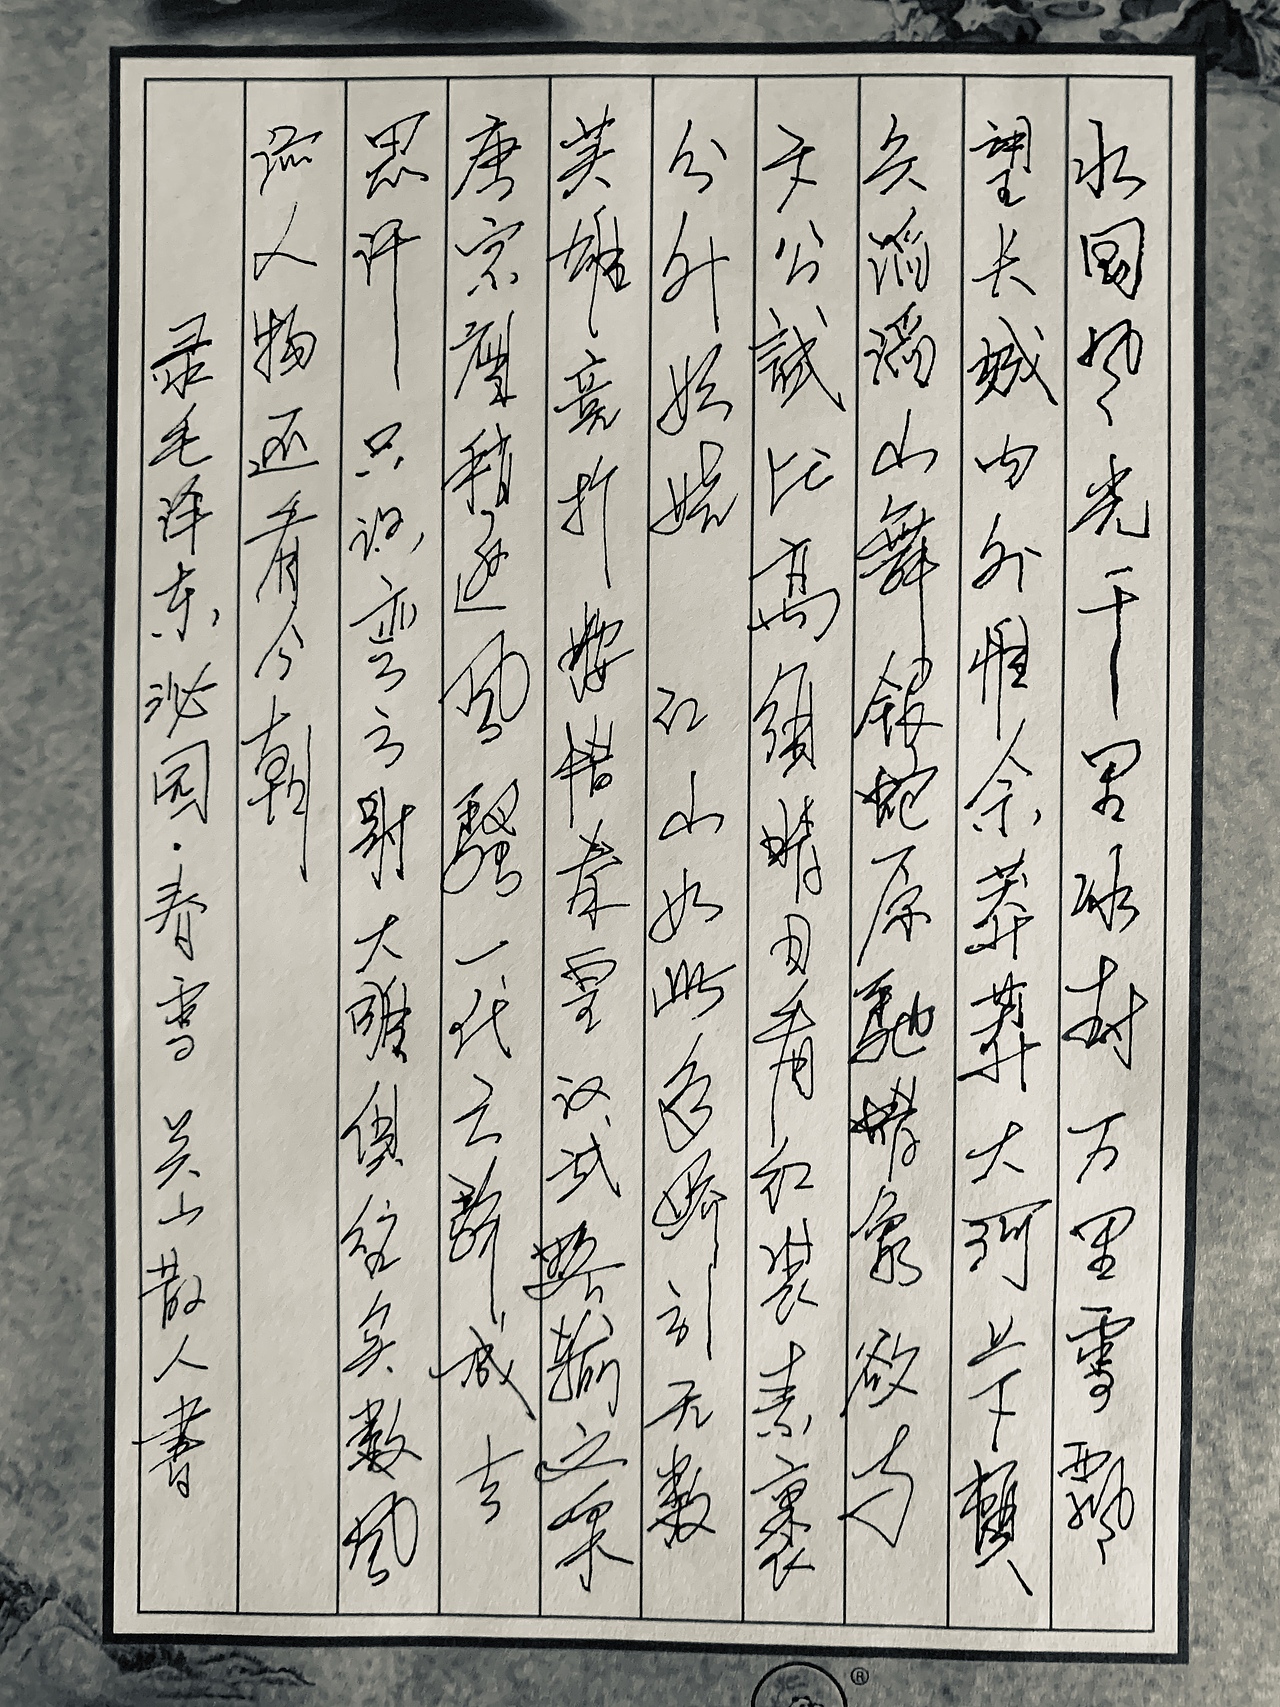 北国风光千里冰封万里雪飘
望长城内外惟余莽莽大河上下顿
失滔滔山舞银蛇原驰蜡象欲与
天公試比高须晴日看红装素裹
分外妖娆 江山如此多娇引无数
英雄竞折腰惜秦皇汉武略输文采
唐宗宋祖稍逊风骚一代天骄成吉
思汗只识弯弓射大雕俱往矣数风
流人物还看今朝
录毛泽东沁园·春雪 吴山散人書
®